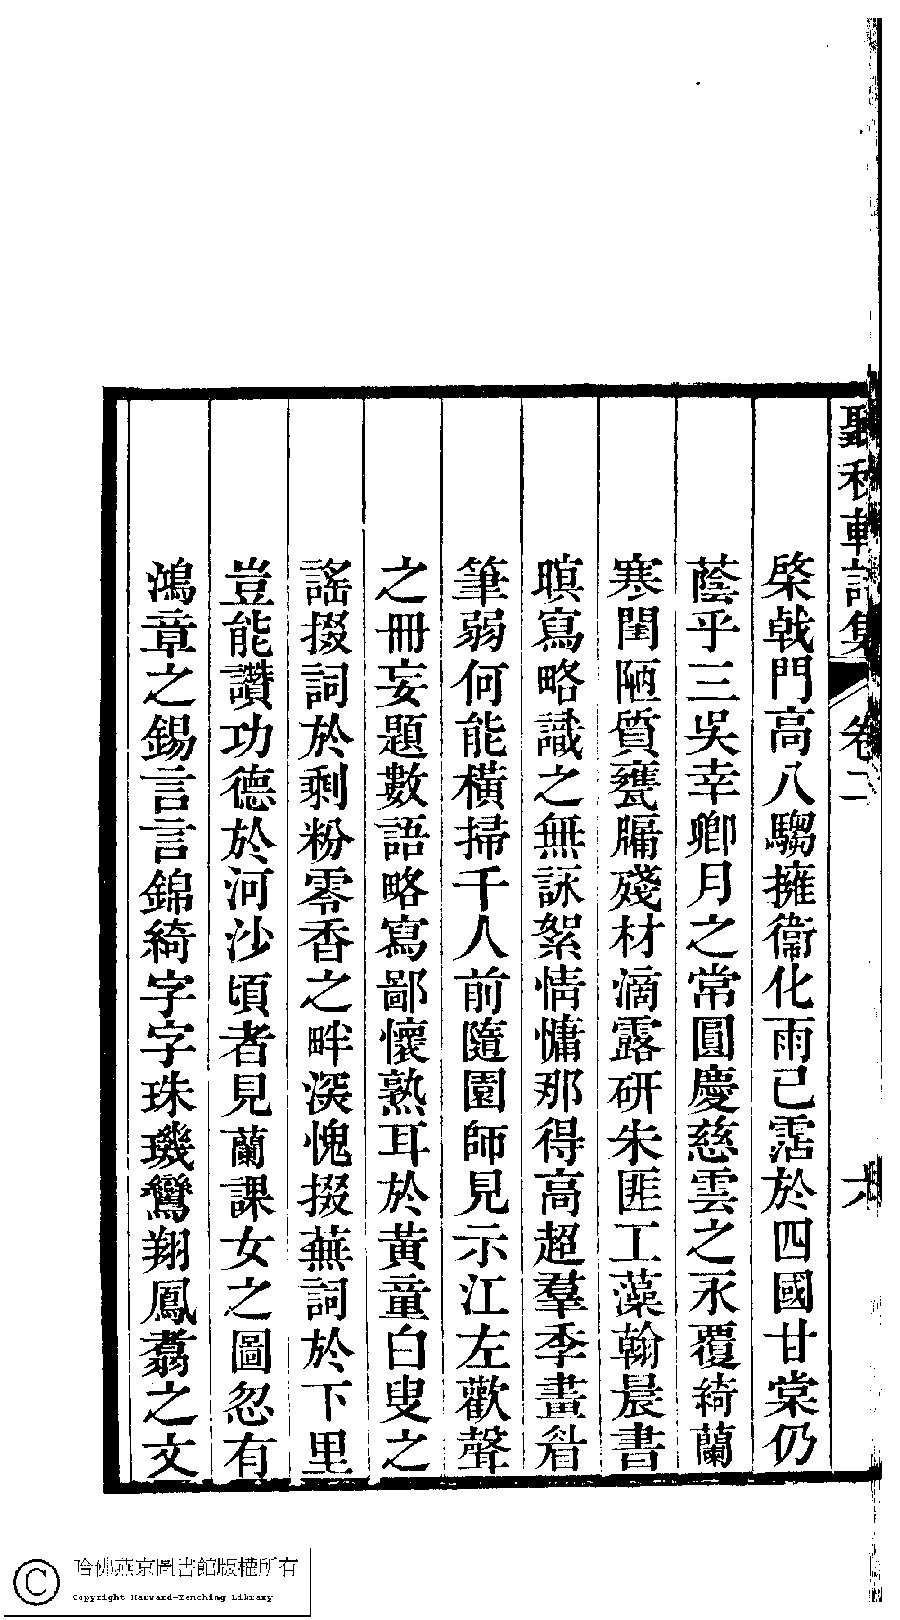 聽秋軒詩集 卷二 六
棨戟門高八騶擁衞化雨已霑於四國甘棠仍
蔭乎三吳幸卿月之常圓慶慈雲之永覆綺蘭
寒閨陋質甕牖殘材滴露研朱匪工藻翰晨書
暝寫略識之無詠絮情慵那得高超羣季畫眉
筆弱何能橫掃千人前隨園師見示江左歡聲
之冊妄題數語略寫鄙懷熟耳於黃童白叟之
謠掇詞於剩粉零香之畔深愧掇蕪詞於下里
豈能讚功德於河沙頃者見蘭課女之圖忽有
鴻章之錫言言錦綺字字珠璣鸞翔鳳翥之文
哈佛燕京圖書館版權所有
Copyright Harvard-Yenching Library